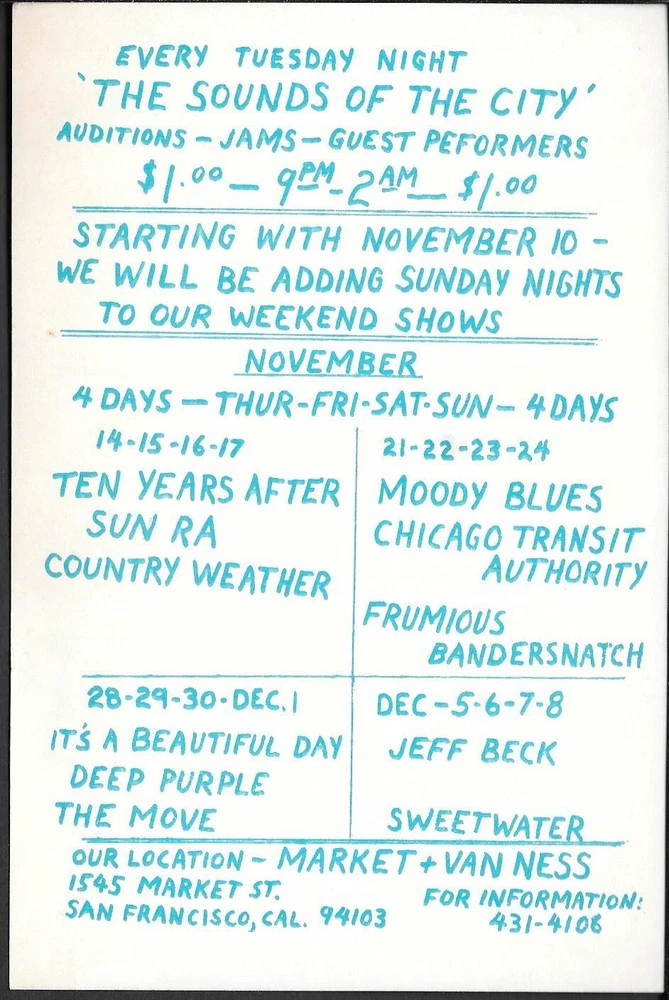 EVERY TUESDAY NIGHT
'THE SOUNDS OF THE CITY'
AUDITIONS - JAMS - GUEST PEFORMERS
$1.00 - 9PM - 2AM - $1.00
STARTING WITH NOVEMBER 10 -
WE WILL BE ADDING SUNDAY NIGHTS
TO OUR WEEKEND SHOWS
NOVEMBER
4 DAYS - THUR-FRI-SAT-SUN- 4 DAYS
14-15-16-17
TEN YEARS AFTER
SUN RA
COUNTRY WEATHER
21-22-23-24
MOODY BLUES
CHICAGO TRANSIT
AUTHORITY
FRUMIOUS
BANDERSNATCH
28-29-30-DEC.1
IT'S A BEAUTIFUL DAY
DEEP PURPLE
THE MOVE
DEC-5-6-7-8
JEFF BECK
SWEETWATER
OUR LOCATION - MARKET + VAN NESS
1545 MARKET ST.
SAN FRANCISCO, CAL. 94103
FOR INFORMATION:
431-4106